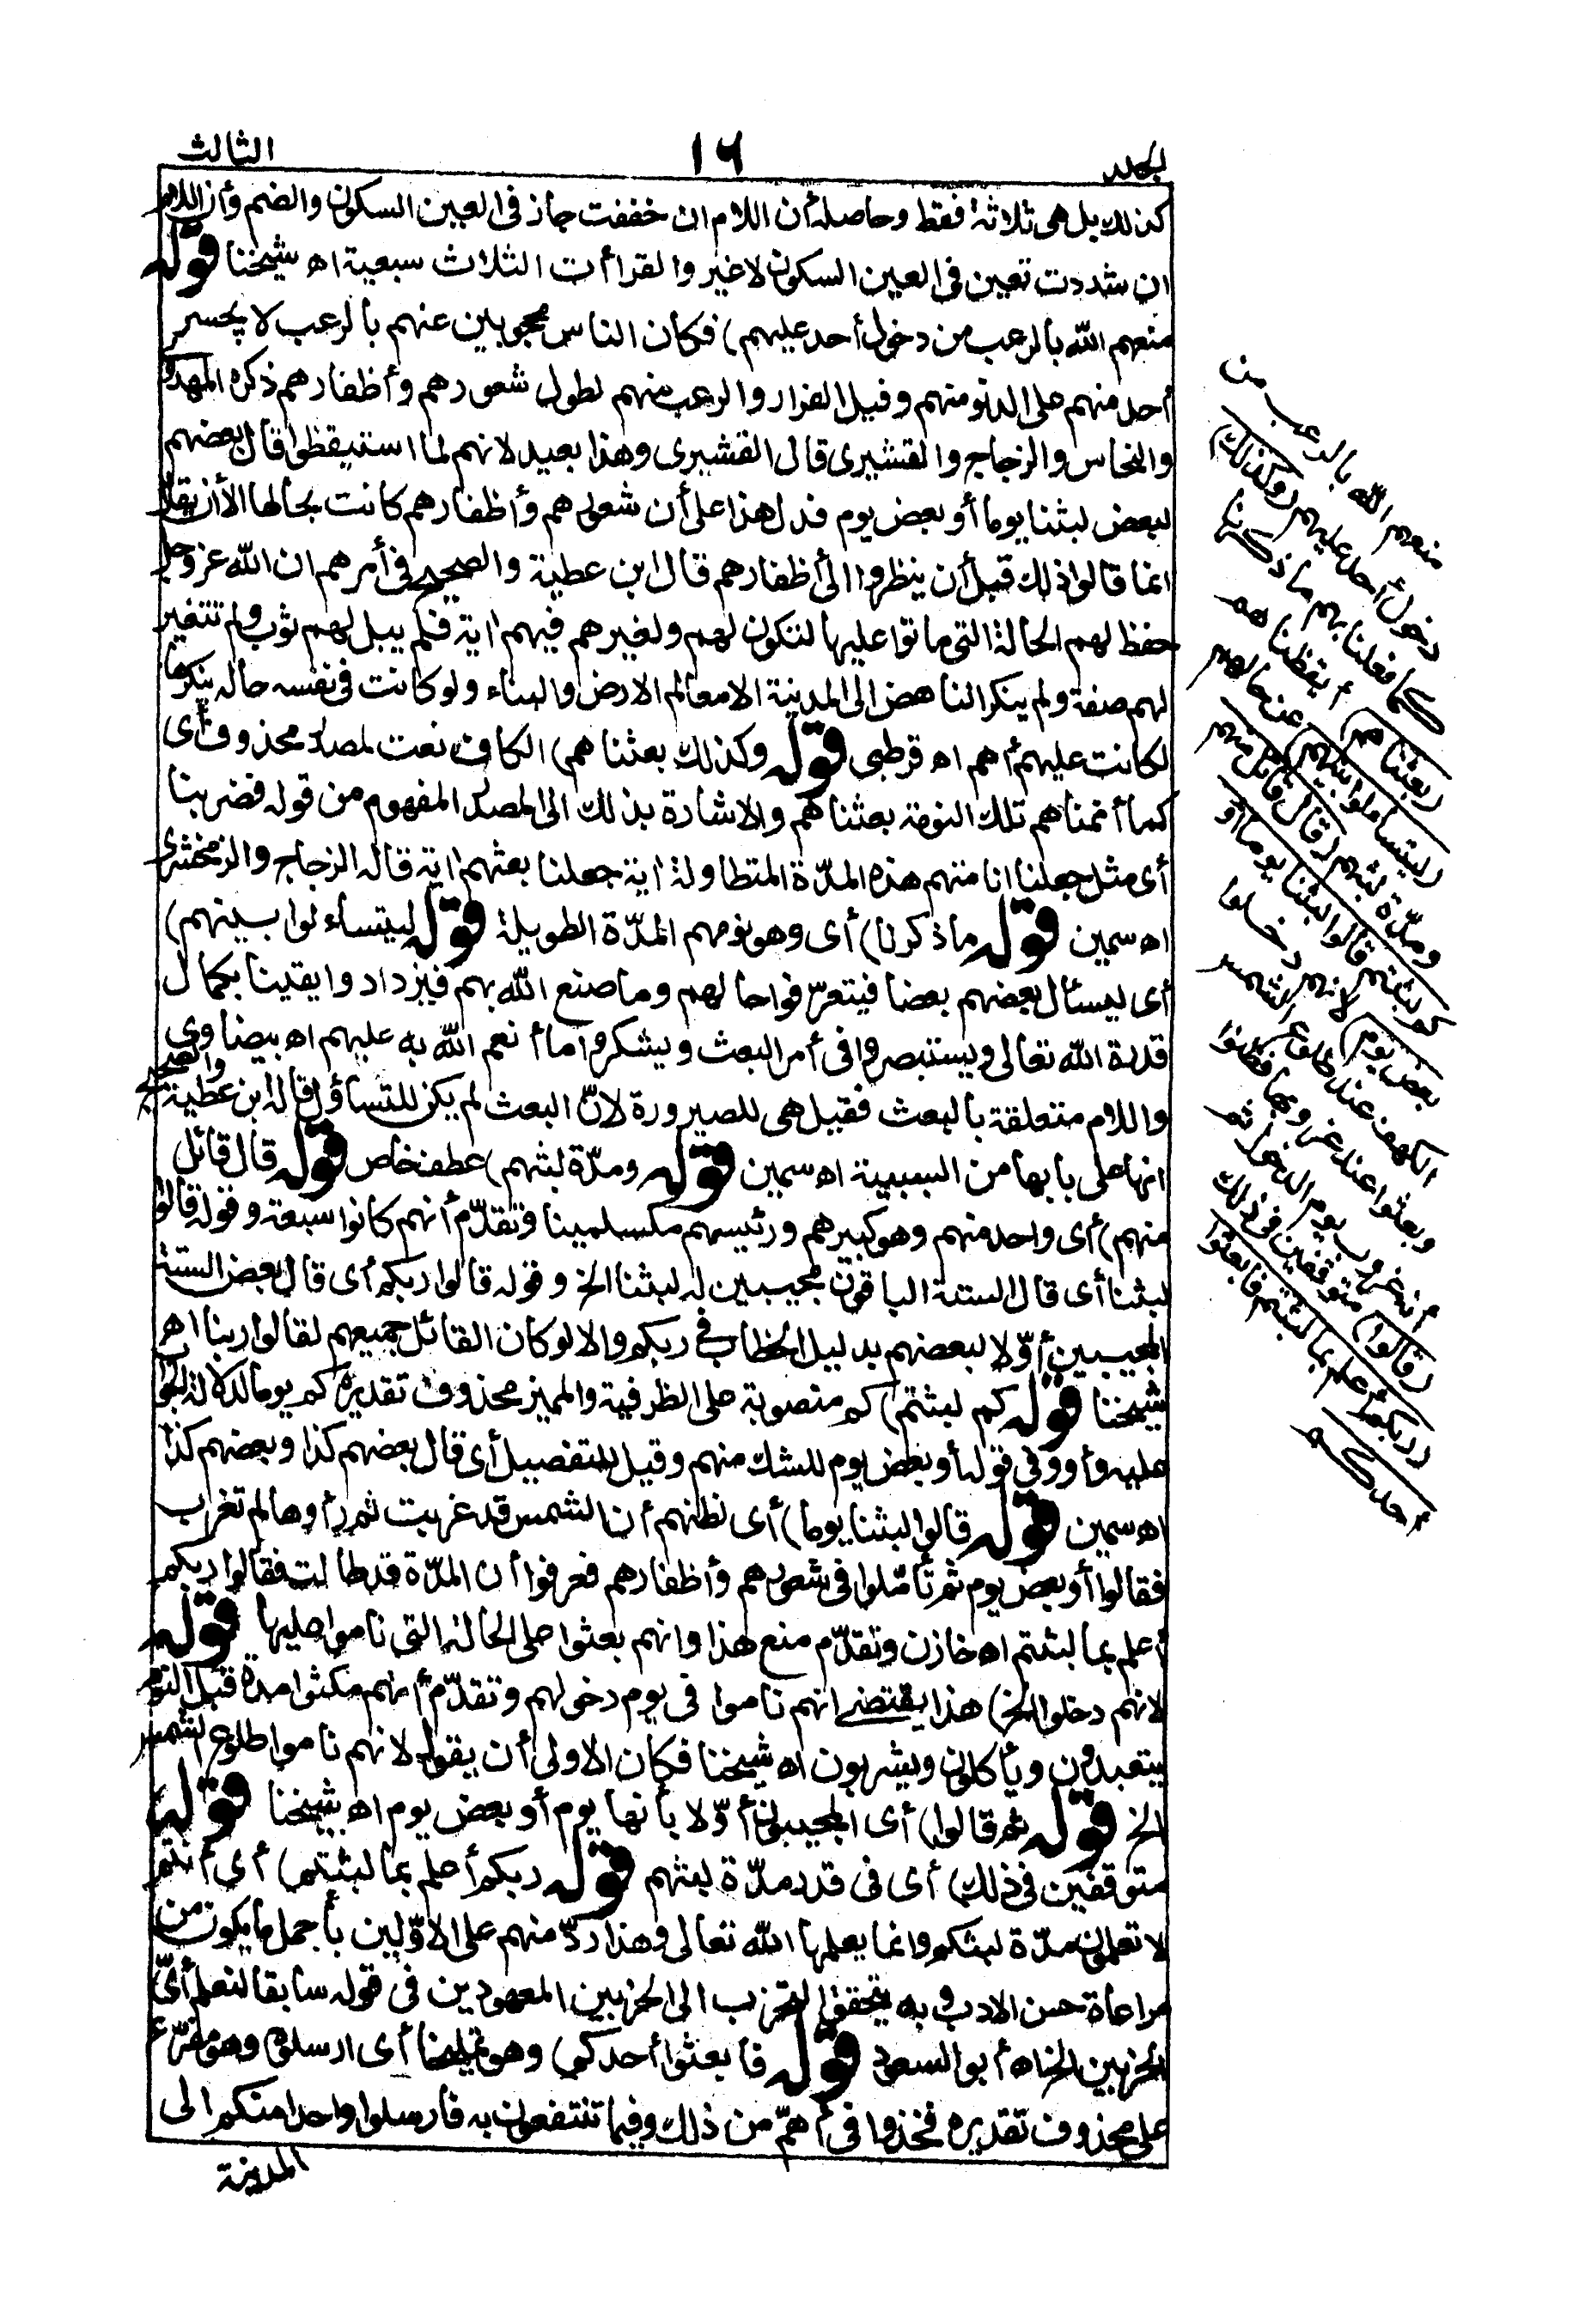 المجلد
١٦
الثالث
كذلك بل هى ثلاثة فقط وحاصله أن اللام ان خففت جاز فى العين السكون والضم وأن اللام
ان شددت تعين فى العين السكون لا غير والقرا أت الثلاث سبعية اه شيخنا قوله
منعهم الله بالرعب من دخول أحد عليهم) فكان الناس محجوبين عنهم بالرعب لا يجسر
أحد منهم على الدنو منهم وقيل الفرار والرعب منهم لطول شعورهم وأظفارهم ذكره المهدوى
والنحاس والزجاج والقشيرى قال القشيرى وهذا بعيد لانهم لما استيقظوا قال بعضهم
لبعض لبثنا يوما أو بعض يوم فدل هذا على أن شعورهم وأظفارهم كانت بحالها الا أن يقال
انما قالوا ذلك قبل أن ينظروا الى أظفارهم قال ابن عطية والصحيح فى أمرهم ان الله عز وجل
حفظ لهم الحالة التى ماتوا عليها لتكون لهم ولغيرهم فيهم اية فلم يبل لهم ثوب ولم تتغير
لهم صفة ولم ينكر الناهض الى المدينة الا معالم الارض والبناء ولو كانت فى نفسه حالة ينكرها
لكانت عليهم أهم اه قرطبى قوله وكذلك بعثناهم) الكاف نعت لمصدر محذوف أى
كما أنمناهم تلك النومة بعثناهم والاشارة بذلك الى المصدر المفهوم من قوله فضربنا
أى مثل جعلنا انامتهم هذه المدّة المتطاولة اية جعلنا بعثهم اية قاله الزجاج والزمخشرى
اه سمين قوله ما ذكرنا) أى وهو نومهم المدّة الطويلة قوله ليتساءلوا بينهم)
أى ليسئال بعضهم بعضا فيتعرّفوا حالهم وما صنع الله بهم فيزدادوا يقينا بكمال
قدرة الله تعالى ويستبصروا فى أمر البعث ويشكروا ما أنعم الله به عليهم اه بيضاوى
واللام متعلقة بالبعث فقيل هى للصيرورة لانّ البعث لم يكن للتساؤل قاله ابن عطية والصحيح
انها على بابها من السببية اه سمين قوله ومدّة لبثهم) عطف خاص قوله قال قائل
منهم) أى واحد منهم وهو كبيرهم ورئيسهم مكسلمينا وتقدّم أنهم كانوا سبعة وقوله قالوا
لبثنا أى قال الستة الباقون مجيبين له لبثنا الخ وقوله قالوا ربكم أى قال بعض الستة
المجيبين أوّلا لبعضهم بدليل الخطاب فى ربكم والا لو كان القائل جميعهم لقالوا ربنا اه
شيخنا قوله كم لبثتم) كم منصوبة على الظرفية والمميز محذوف تقديره كم يوما لدلالة الجواب
عليه وأو فى قوله أو بعض يوم للشك منهم وقيل للتفصيل أى قال بعضهم كذا وبعضهم كذا
اه سمين قوله قالوا لبثنا يوما) أى لظنهم أن الشمس قد غربت ثم رأوها لم تغرب
فقالوا أو بعض يوم ثم تأمّلوا فى شعورهم وأظفارهم فعرفوا أن المدّة قد طالت فقالوا ربكم
أعلم بما لبثتم اه خازن وتقدّم منع هذا وانهم بعثوا على الحالة التى ناموا عليها قوله
لانهم دخلوا الخ) هذا يقتضى انهم ناموا فى يوم دخولهم وتقدّم أنهم مكثوا مدة قبل النوم
يتعبدون ويأكلون ويشربون اه شيخنا فكان الاولى أن يقول لانهم ناموا طلوع الشمس
الخ قوله ثم قالوا) أى المجيبون أوّلا بأنها يوم أو بعض يوم اه شيخنا قوله
متوقفين فى ذلك) أى فى قدر مدّة لبثهم قوله ربكم أعلم بما لبثتم) أى أنتم
لا تعلمون مدّة لبثكم وانما يعلمها الله تعالى وهذا ردّ منهم على الاوّلين بأجمل ما يكون من
مراعاة حسن الادب وبه يتحقق التحزب الى الحزبين المعهودين فى قوله سابقا لنعلم أىّ
الحزبين الخ اه أبو السعود قوله فابعثوا أحدكم) وهو تمليخا أى ارسلوه وهو مفرّع
على محذوف تقديره فخذوا فى أهمّ من ذلك وفيما تنتفعون به فارسلوا واحدا منكم الى
المدينة
منعهم الله بالرعب من
دخول أحد عليهم (وكذلك)
كما فعلنا بهم ما ذكرنا
(بعثناهم) أيقظناهم
(ليتساءلوا بينهم) عن حالهم
ومدّة لبثهم (قال قائل منهم
كم لبثتم قالوا لبثنا يوما أو
بعض يوم) لانهم دخلوا
الكهف عند طلوع الشمس
وبعثوا عند غروبها فظنوا
أنه غروب يوم الدخول ثم
(قالوا) متوقفين فى ذلك
(ربكم أعلم بما لبثتم فابعثوا
أحدكم